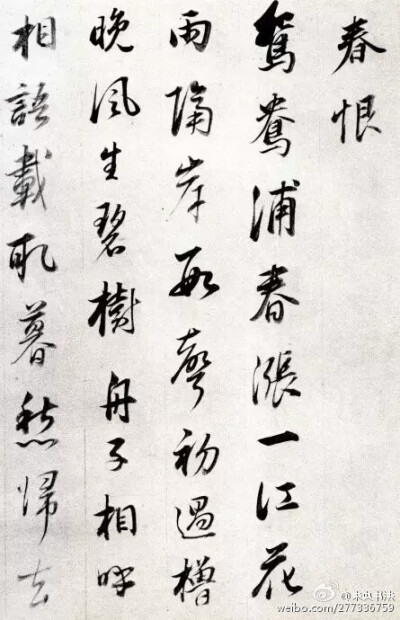 春恨
鴛鴦浦春漲一江花
雨隔岸數聲初過櫓
晚風生碧樹舟子相呼
相語載取暮愁歸去
@未央书法
weibo.com/277336759